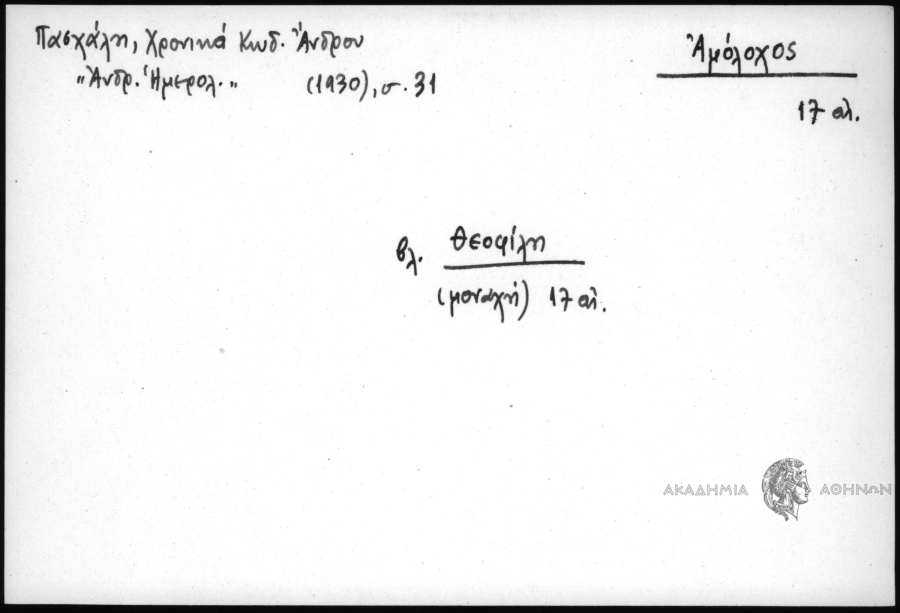 Πασχάλη, Χρονικά Κωδ. Ἄνδρου
"Ἀνδρ. Ἡμερολ." (1930), σ. 31
Ἀμόλοχος
17 αἰ.
βλ. Θεοφίλη
(μοναχή) 17 αἰ.
ΑΚΑΔΗΜΙΑ ΑΘΗΝΩΝ